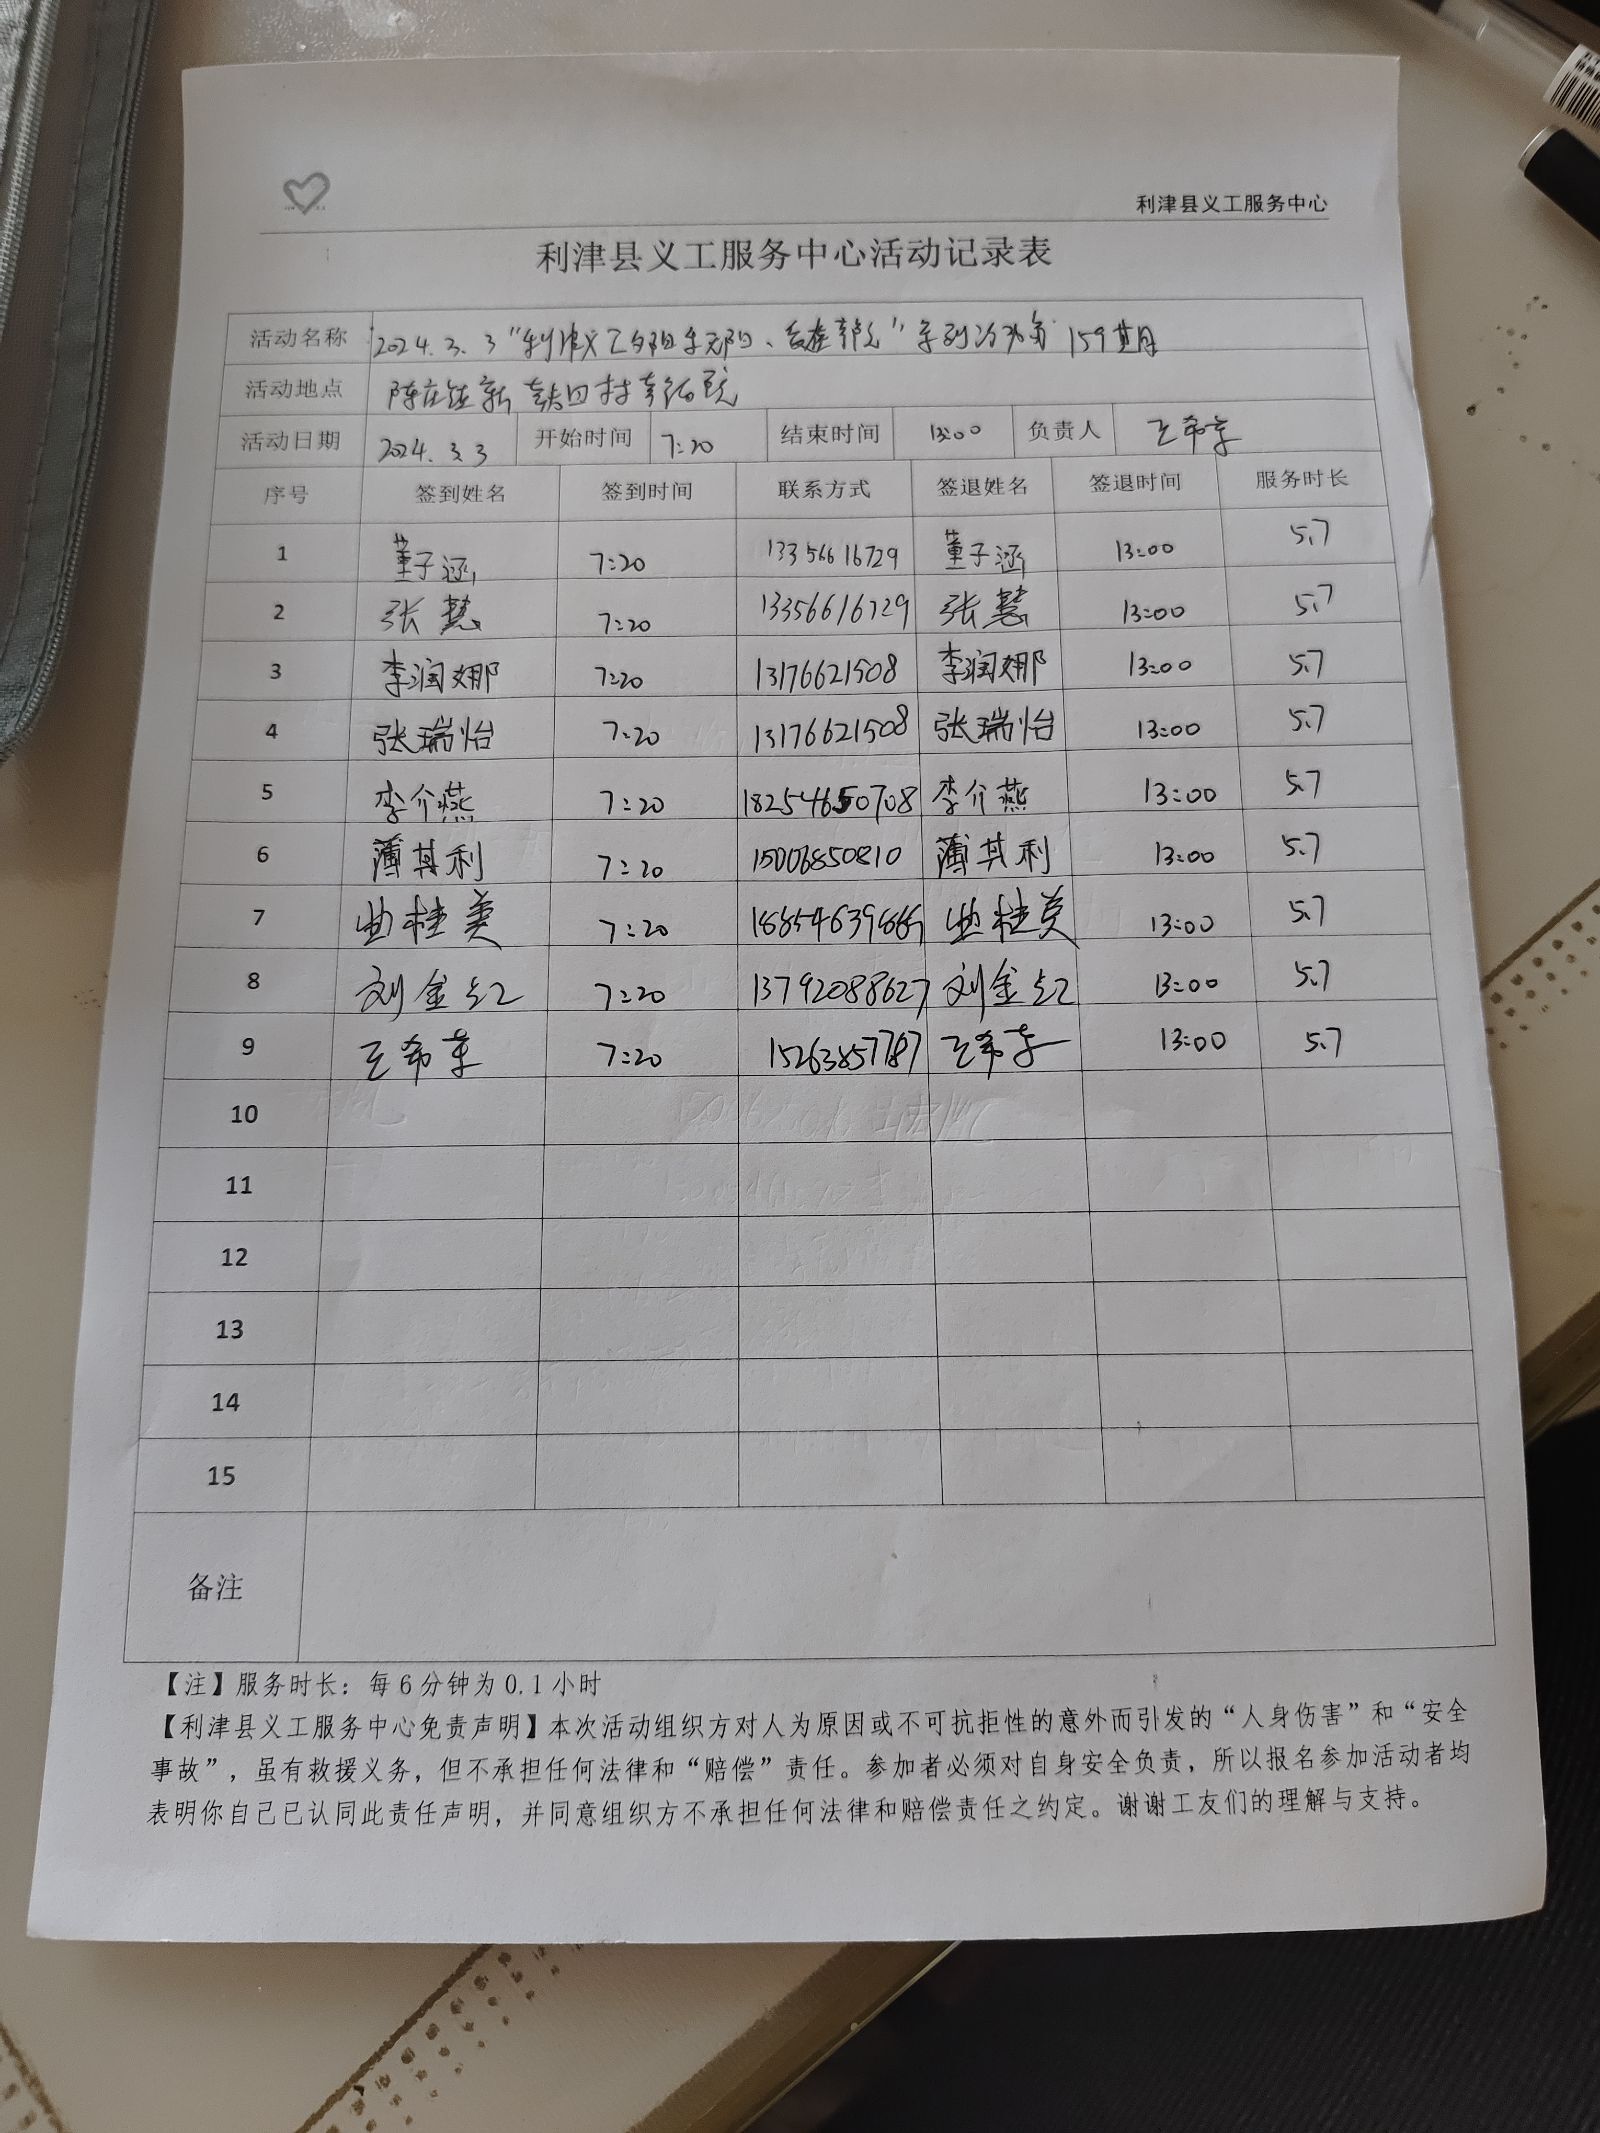 利津县义工服务中心
利津县义工服务中心活动记录表
活动名称 2024.3.3"利津义工 " 系列活动第159期
活动地点 陈庄镇 村
活动日期 2024.3.3 开始时间 7:20 结束时间 13:00 负责人 王希
序号 签到姓名 签到时间 联系方式 签退姓名 签退时间 服务时长
1 董子涵 7:20 13356616729 董子涵 13:00 5.7
2 张慧 7:20 13356616729 张慧 13:00 5.7
3 李润娜 7:20 13176621508 李润娜 13:00 5.7
4 张瑞怡 7:20 13176621508 张瑞怡 13:00 5.7
5 李介燕 7:20 18254650708 李介燕 13:00 5.7
6 薄其利 7:20 薄其利 13:00 5.7
7 曲桂美 7:20 曲桂美 13:00 5.7
8 刘金红 7:20 13792088627 刘金红 13:00 5.7
9 王希 7:20 15263857787 王希 13:00 5.7
10
11
12
13
14
15
备注
【注】服务时长：每6分钟为0.1小时
【利津县义工服务中心免责声明】本次活动组织方对人为原因或不可抗拒性的意外而引发的“人身伤害”和“安全
事故”，虽有救援义务，但不承担任何法律和“赔偿”责任。参加者必须对自身安全负责，所以报名参加活动者均
表明你自己已认同此责任声明，并同意组织方不承担任何法律和赔偿责任之约定。谢谢工友们的理解与支持。